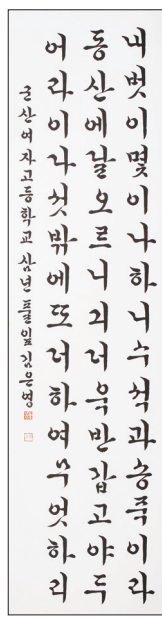 내벗이몇이나하니수석과송죽이라
동산에달오르니긔더욱반갑고야두
어라이다섯밖에또더하여무엇하리
군산여자고등학교 삼년 풀잎 김은영